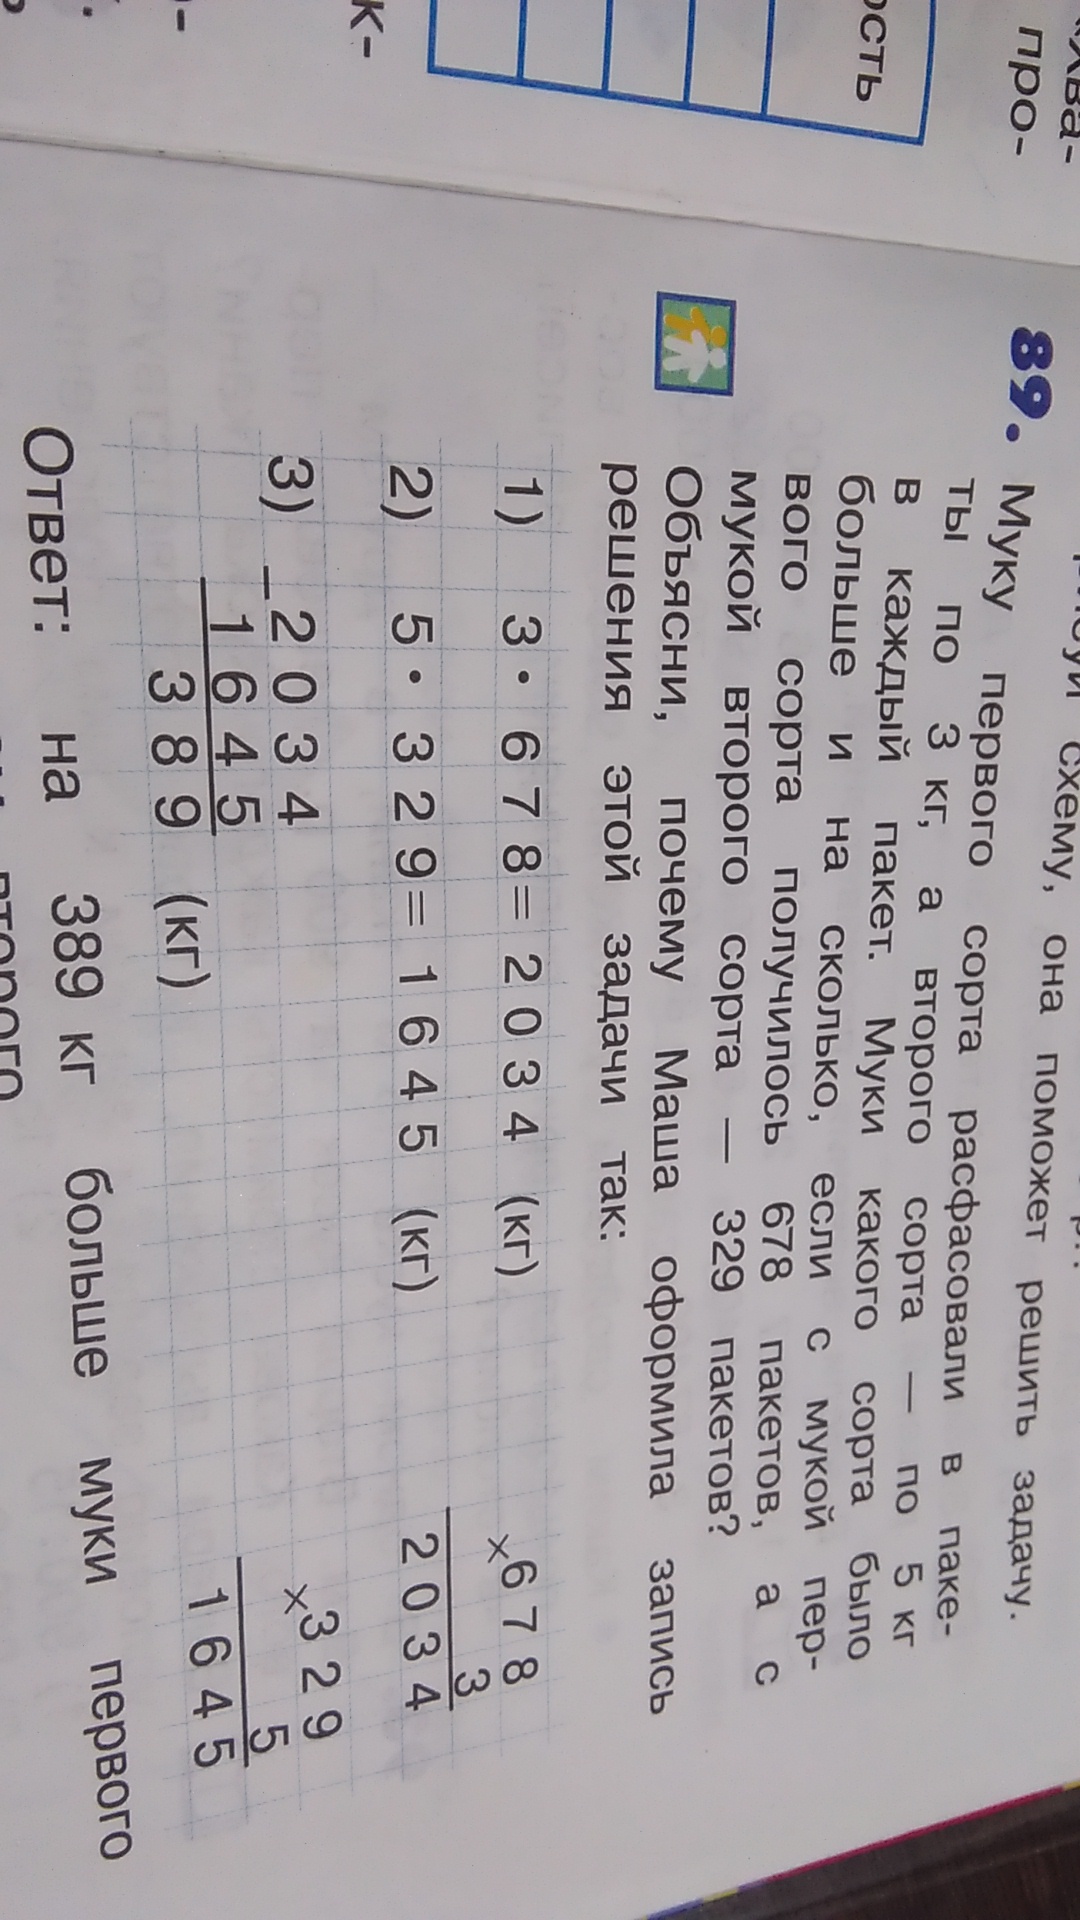 «Хва-
про-
ость
к-
схему, она поможет решить задачу.
89. Муку первого сорта расфасовали в паке-
ты по 3 кг, а второго сорта — по 5 кг
в каждый пакет. Муки какого сорта было
больше и на сколько, если с мукой пер-
вого сорта получилось 678 пакетов, а с
мукой второго сорта — 329 пакетов?
Объясни, почему Маша оформила запись
решения этой задачи так:
1) 3 · 678 = 2034 (кг)
×678
3
2034
2) 5 · 329 = 1645 (кг)
×329
5
1645
3) _2034
1645
389 (кг)
Ответ: на 389 кг больше муки первого
второго